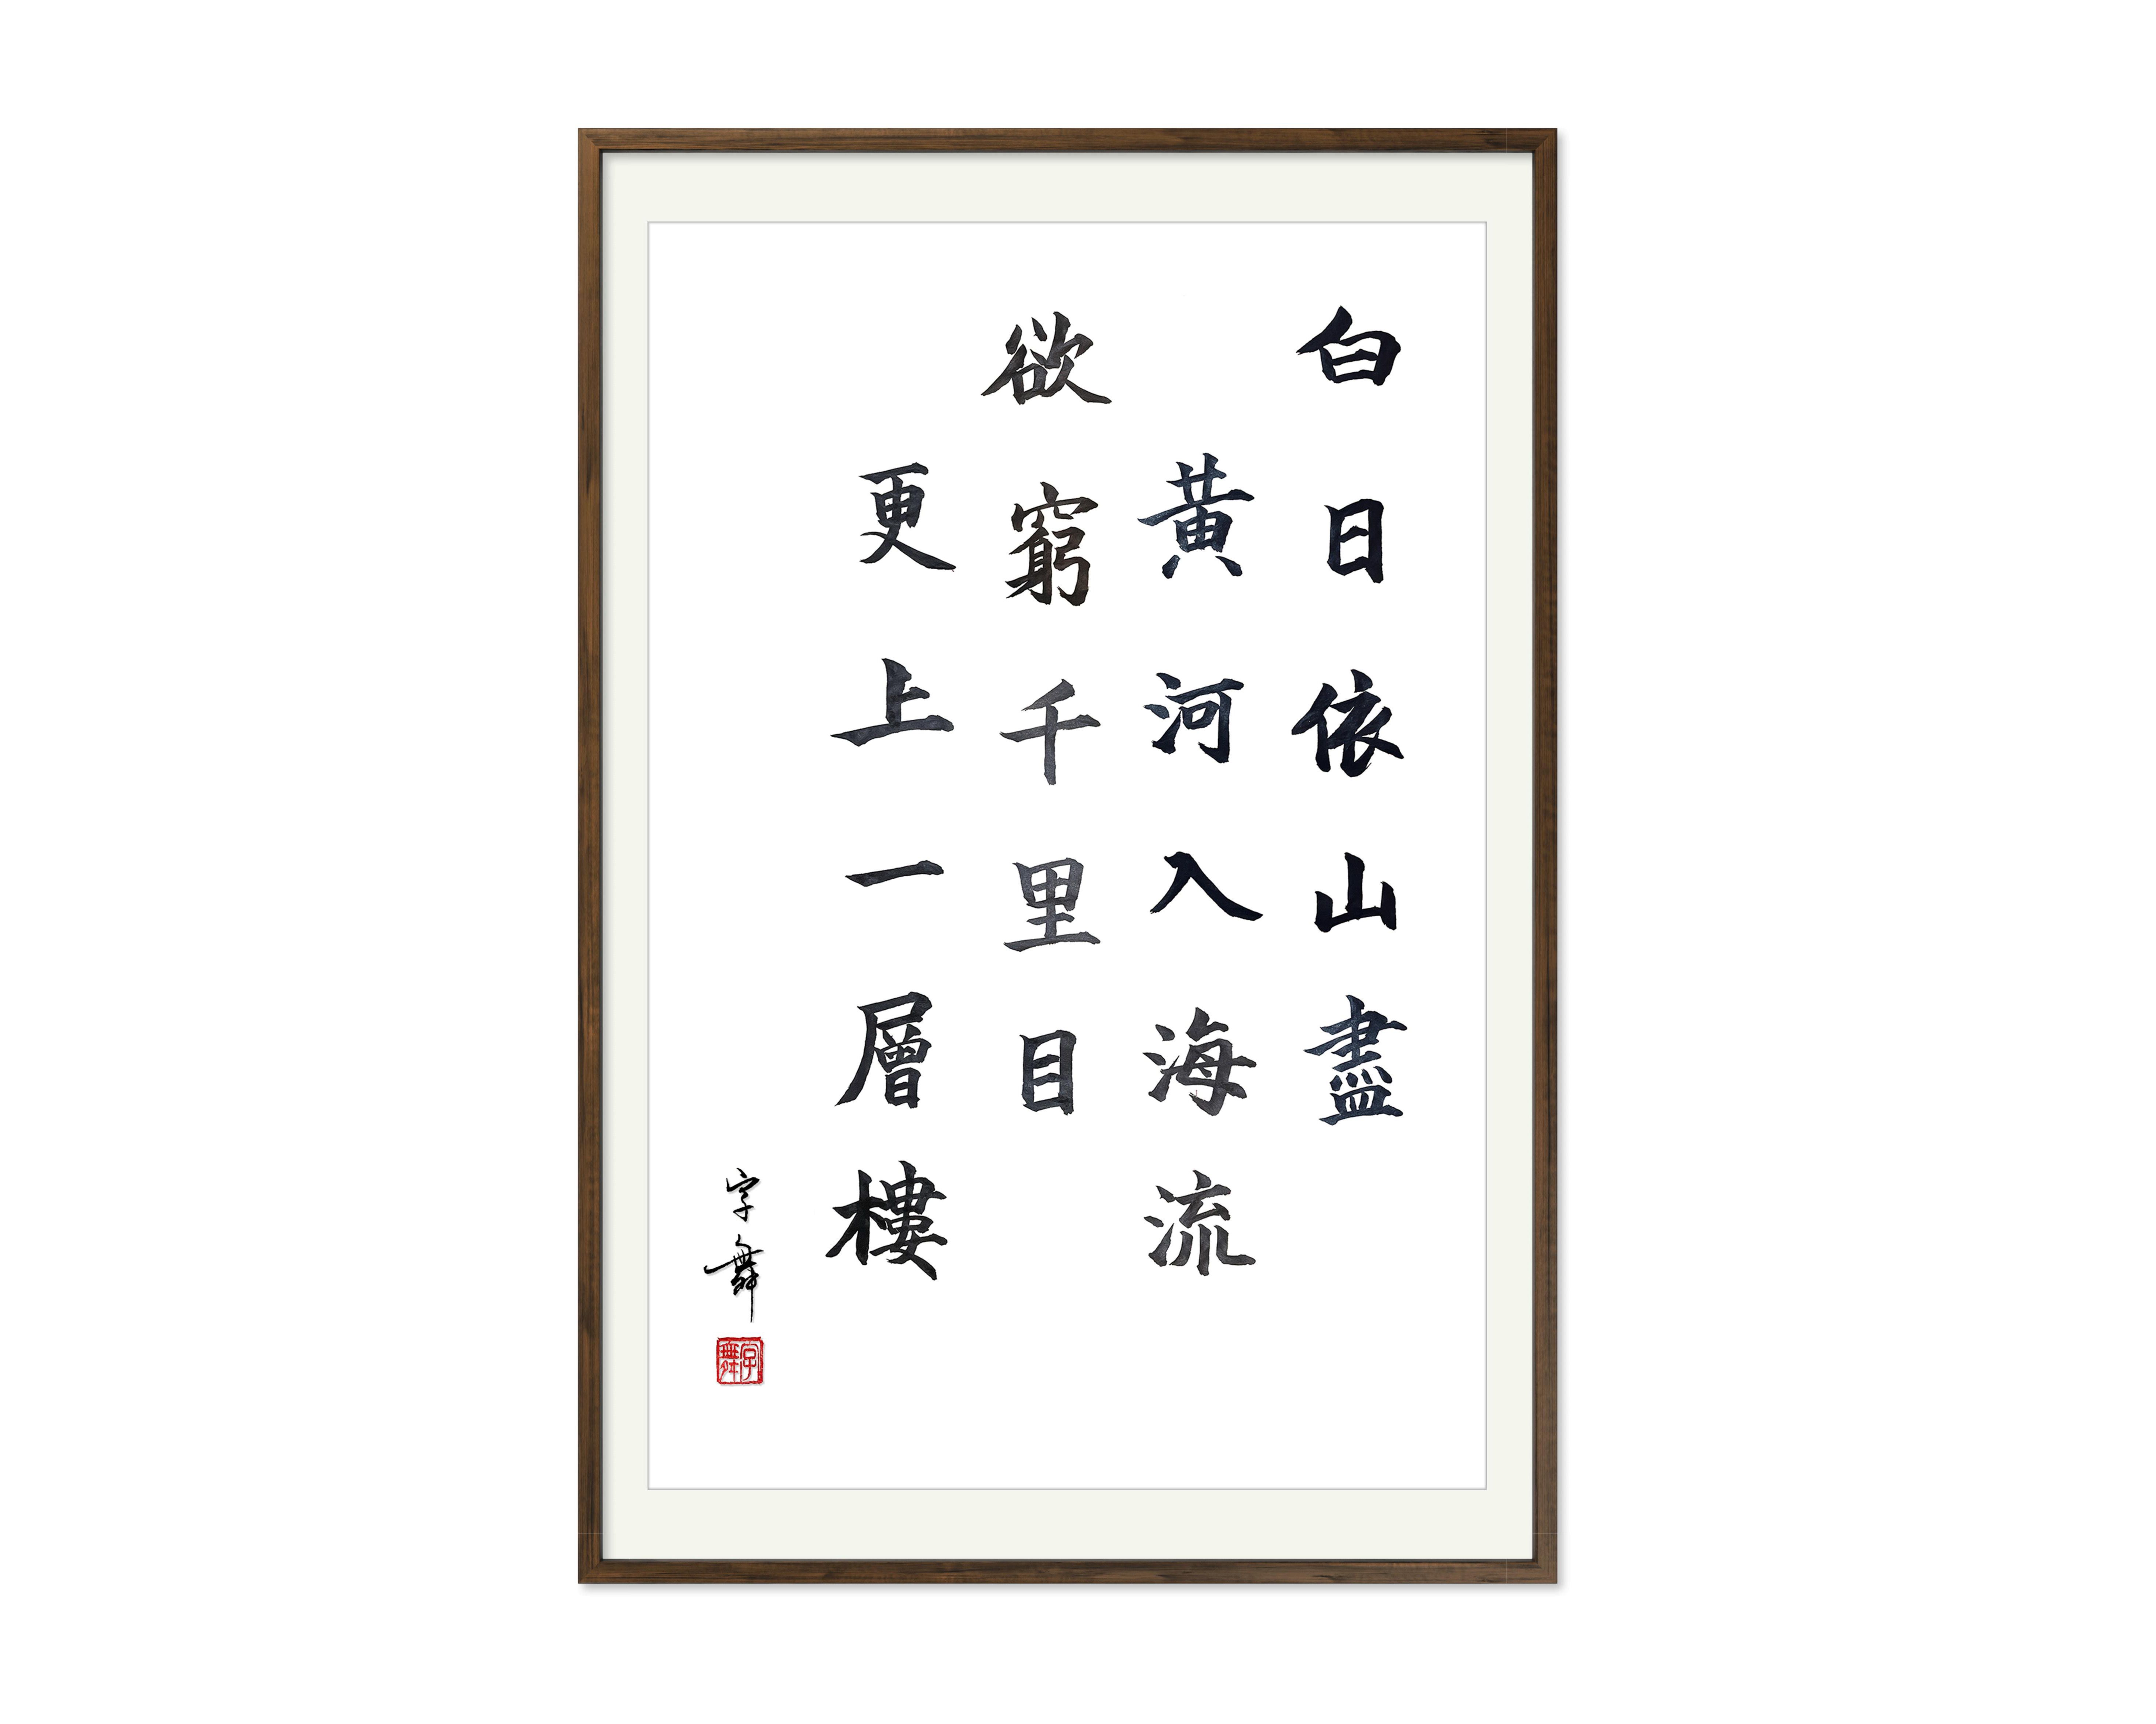 白日依山盡
黃河入海流
欲窮千里目
更上一層樓
字舞
字舞